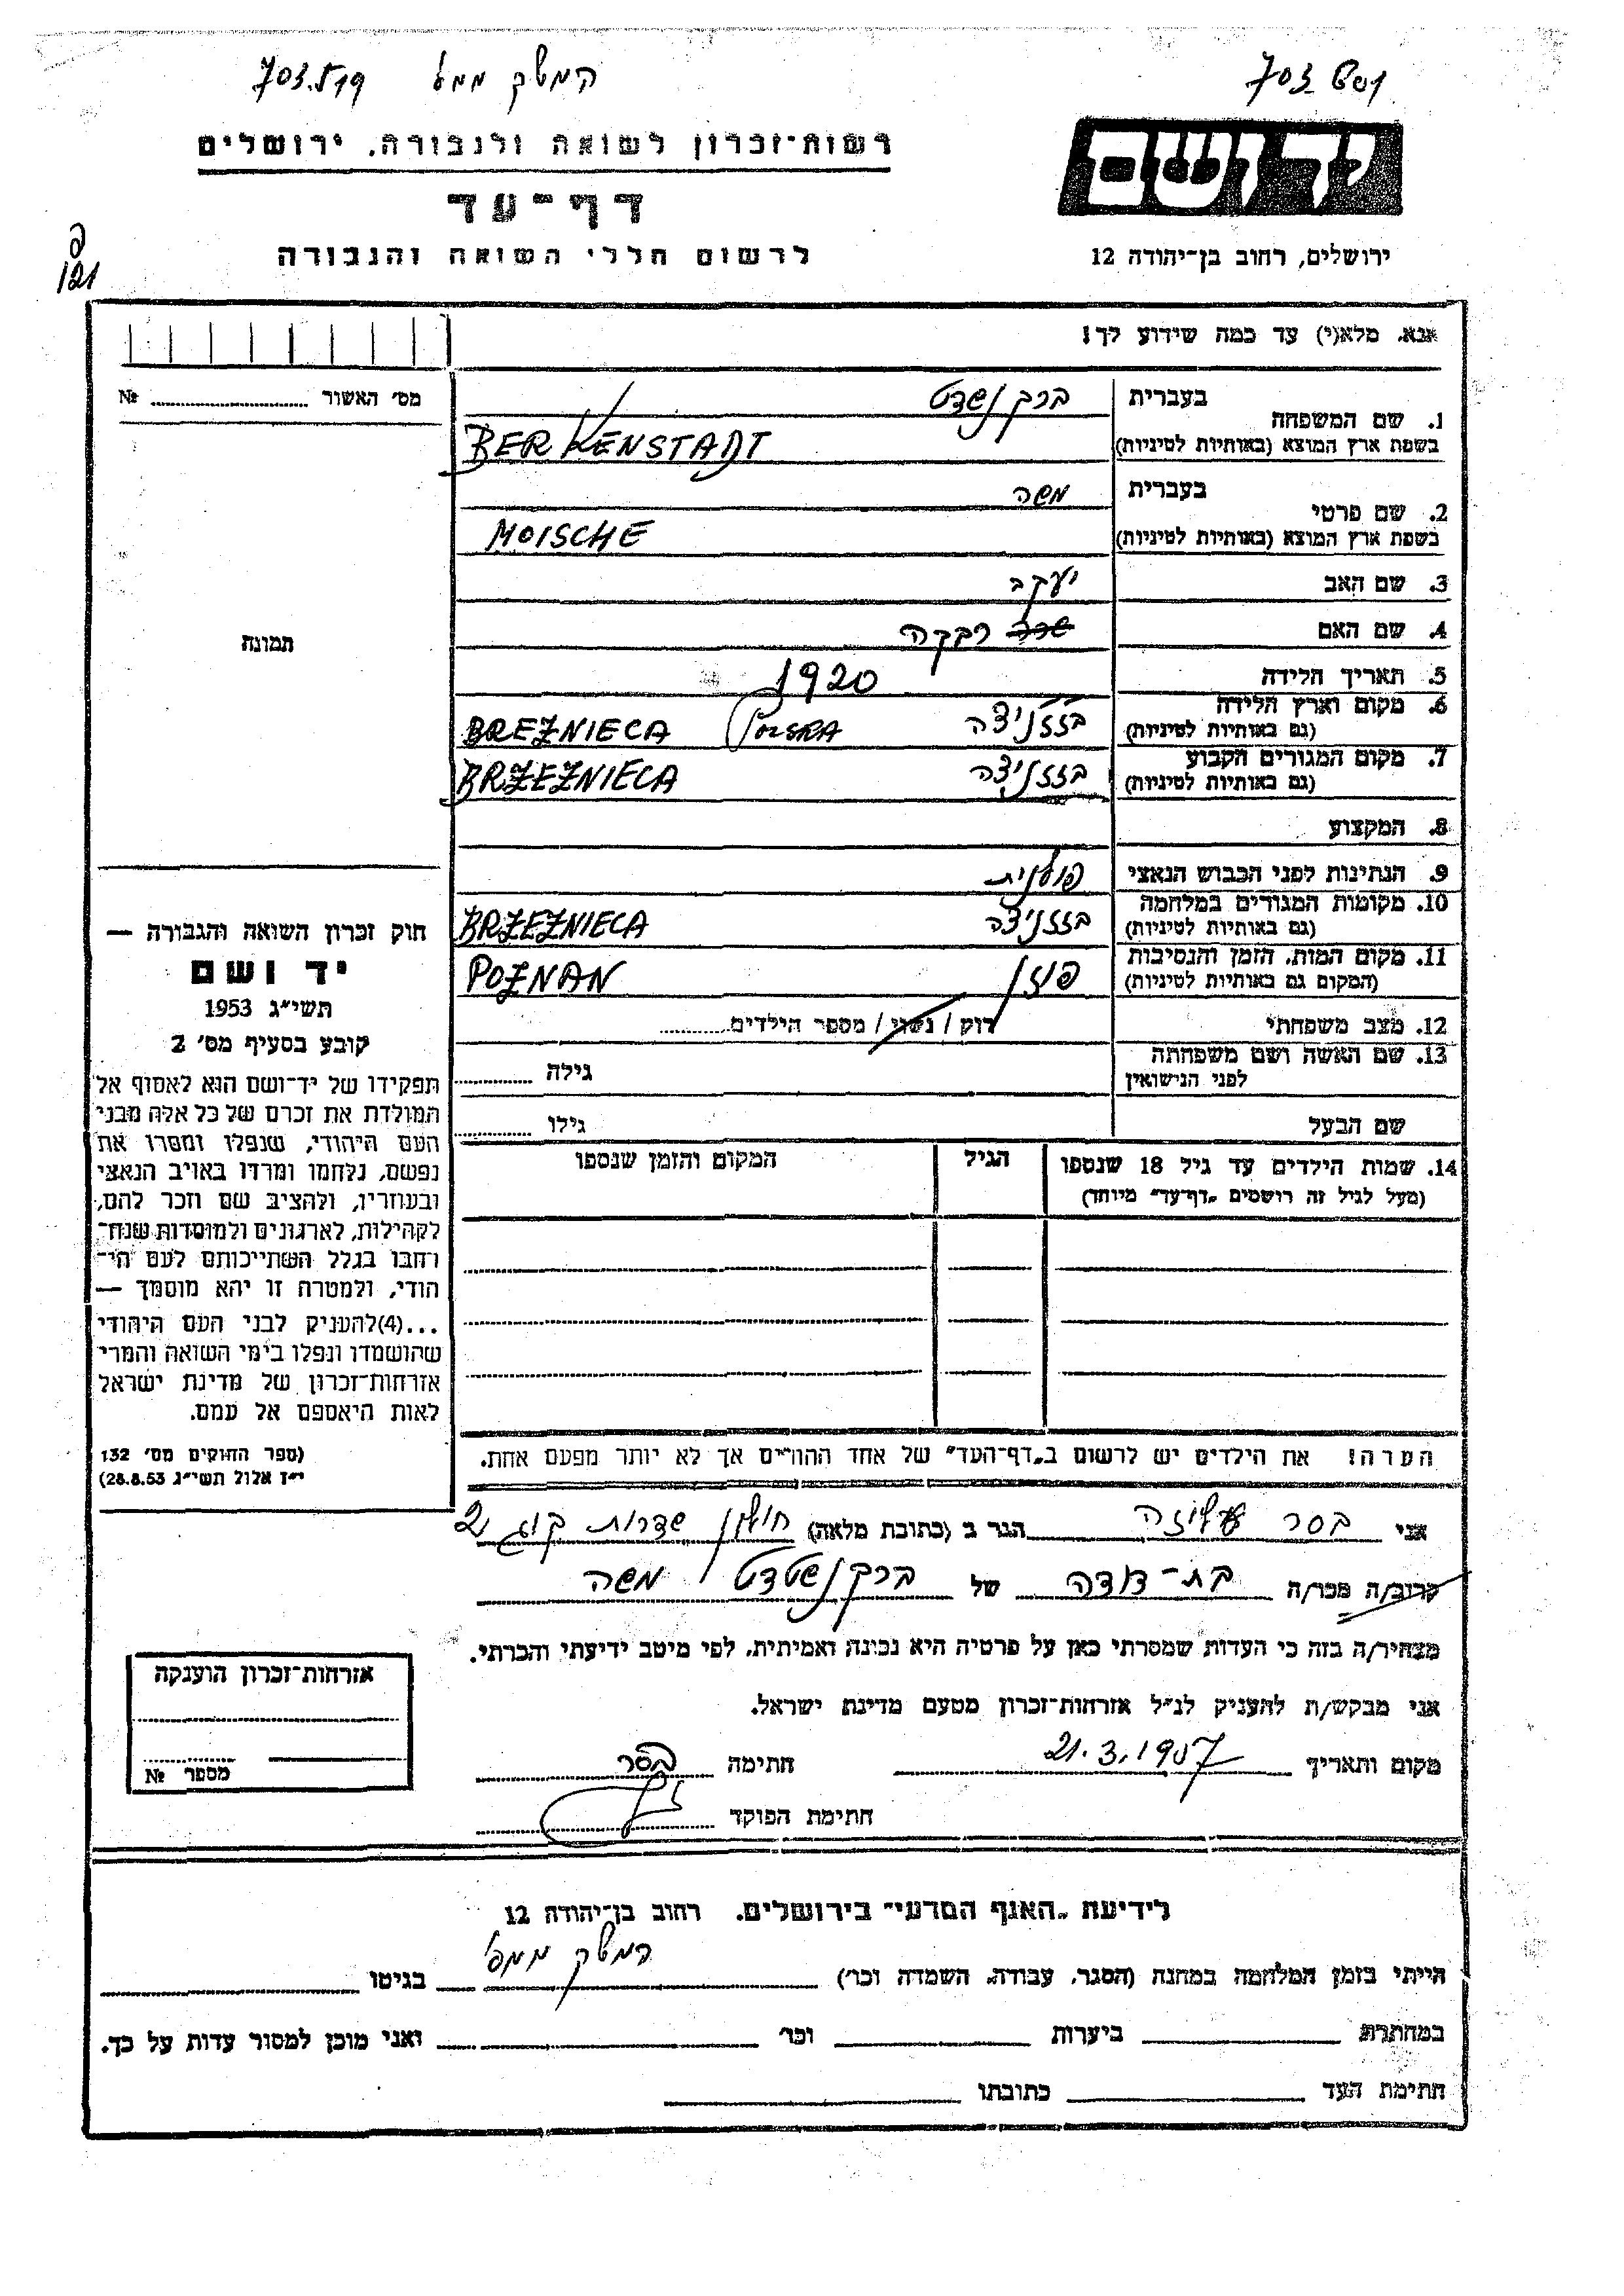 המשק ממפ'
יד ושם
רשות-זכרון לשואה ולגבורה, ירושלים
דף-עד
לרשום חללי השואה והגבורה
ירושלים, רחוב בן-יהודה 12
121
אנא, מלא(י) עד כמה שידוע לך!
מס' האשור № 
1. שם המשפחה
בעברית ברקנשדט
בשפת ארץ המוצא (באותיות לטיניות) BERKENSTADT
2. שם פרטי
בעברית משה
בשפת ארץ המוצא (באותיות לטיניות) MOISCHE
3. שם האב יעקב
4. שם האם רבקה
תמונה
5. תאריך הלידה 1920
6. מקום וארץ הלידה בזזניצה BREŻNIECA POLSKA
(גם באותיות לטיניות)
7. מקום המגורים הקבוע בזזניצה BRZEŻNIECA
(גם באותיות לטיניות)
8. המקצוע
9. הנתינות לפני הכבוש הנאצי פולנית
10. מקומות המגורים במלחמה בזזניצה BRZEŻNIECA
(גם באותיות לטיניות)
11. מקום המות, הזמן והנסיבות פוזן POZNAN
(המקום גם באותיות לטיניות)
12. מצב משפחתי רוק / נשוי / מספר הילדים
13. שם האשה ושם משפחתה גילה
לפני הנישואין
שם הבעל גילו
14. שמות הילדים עד גיל 18 שנספו הגיל המקום והזמן שנספו
(מעל לגיל זה רושמים "דף-עד" מיוחד)
הערה! את הילדים יש לרשום ב"דף-העד" של אחד ההורים אך לא יותר מפעם אחת.
חוק זכרון השואה והגבורה —
יד ושם
תשי"ג 1953
קובע בסעיף מס' 2
תפקידו של יד-ושם הוא לאסוף אל
המולדת את זכרם של כל אלה מבני
העם היהודי, שנפלו ומסרו את
נפשם, נלחמו ומרדו באויב הנאצי
ובעוזריו, ולהציב שם וזכר להם,
לקהילות, לארגונים ולמוסדות שנח-
רבו בגלל השתייכותם לעם הי-
הודי, ולמטרה זו יהא מוסמך —
...(4)להעניק לבני העם היהודי
שהושמדו ונפלו בימי השואה והמרי
אזרחות-זכרון של מדינת ישראל
לאות היאספם אל עמם.
(ספר החוקים מס' 132
י"ז אלול תשי"ג 28.8.53)
אני בסר עליזה הגר ב (כתובת מלאה) חולון שדרות קוג' 2
קרוב/ה מכר/ה בת-דודה של ברקנשטדט משה
מצהיר/ה בזה כי העדות שמסרתי כאן על פרטיה היא נכונה ואמיתית, לפי מיטב ידיעתי והכרתי.
אני מבקש/ת להעניק לנ"ל אזרחות-זכרון מטעם מדינת ישראל.
מקום ותאריך 21.3.1957 חתימה בסר
חתימת הפוקד
אזרחות-זכרון הוענקה
מספר №
לידיעת "האגף המדעי" בירושלים, רחוב בן-יהודה 12
המשק ממפ'
הייתי בזמן המלחמה במחנה (הסגר, עבודה, השמדה וכו') בגיטו
במחתרת ביערות וכו' ואני מוכן למסור עדות על כך.
חתימת העד כתובתו